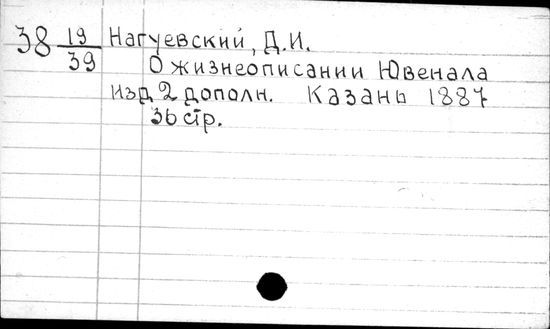 38 19/39 Нагуевский, Д.И.
О жизнеописании Ювенала
изд 2 дополн. Казань 1887
36 стр.